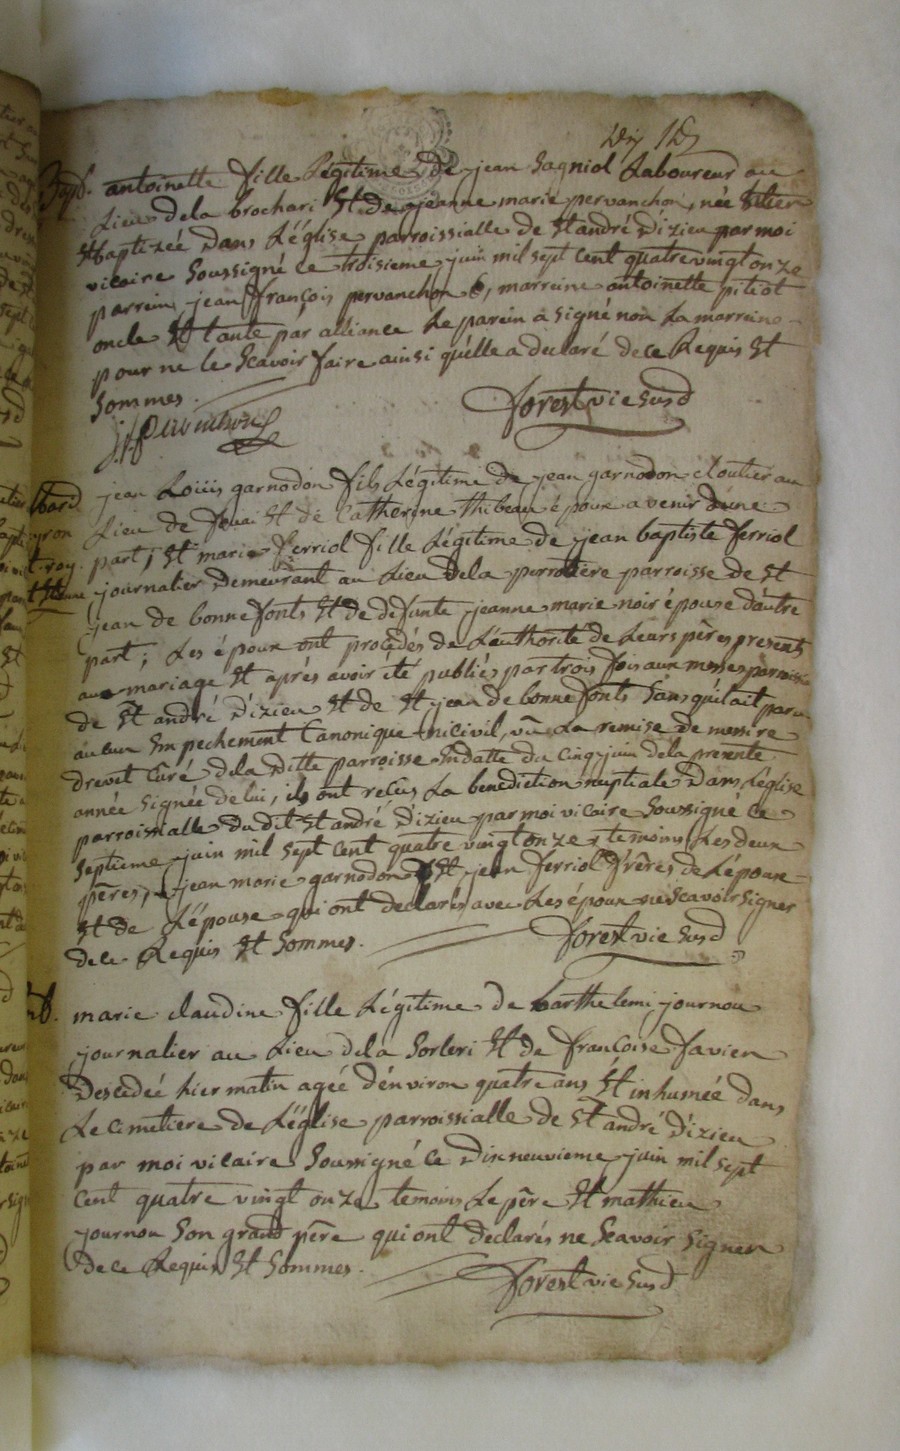 antoinette fille Légitime de jean Sagniol Laboureur au
Lieu dela brochari Et de jeanne marie pervanchon, née Et
Baptizéé dans L'église parroissialle de St andré d'izieu par moi
vicaire Soussigné ce troisieme juin mil sept cent quatre vingt onze
parrein jean françois pervanchon &, marreine antoinette pitiot
oncle Et tante par alliance Le parein a signé non La marreine
pour ne le Scavoir faire ainsi qu'elle a declaré de ce Requis Et
Sommés.
forest vic Susd
jean Louis garnodon fils Légitime de jean garnodon cloutier au
Lieu de Et de Catherine thibeau époux avenir d'une
part; Et marie ferriol fille Légitime de jean baptiste ferriol
journalier demeurant au Lieu dela perrotière parroisse de St
jean de bonnefonts Et de défunte jeanne marie noir épouse d'autre
part; Les époux ont procédés de L'authorité de Leurs pères presents
au mariage Et aprés avoir été publiés par trois fois aux messes
de St andré d'izieu Et de St jean de bonnefonts Sans qu'il ait paru
aucun Empechement Canonique ni civil, vû La remise de messire
drevet Curé dela ditte parroisse En datte du cinq juin dela presente
année Signée de lui, ils ont reçus La benediction nuptiale dans L'église
parroissialle dudit St andré d'izieu par moi vicaire Soussigné ce
Septieme juin mil sept cent quatre vingt onze temoins Les deux
pères, jean marie garnodon Et jean ferriol frères de L'époux
Et de L'épouse qui ont declarés avec Les époux ne Scavoir Signer
de ce Requis Et Sommés.
forest vic Susd
marie claudine fille Légitime de barthelemi journou
journalier au Lieu dela Sorleri Et de françoise favier
Décédéé hier matin agéé d'environ quatre ans Et inhuméé dans
Le cimetiere de L'église parroissialle de St andré d'izieu
par moi vicaire Soussigné ce dix neuvieme juin mil sept
cent quatre vingt onze temoins Le père Et mathieu
journou Son grand père qui ont declarés ne Scavoir Signer
de ce Requis Et Sommés.
forest vic Susd